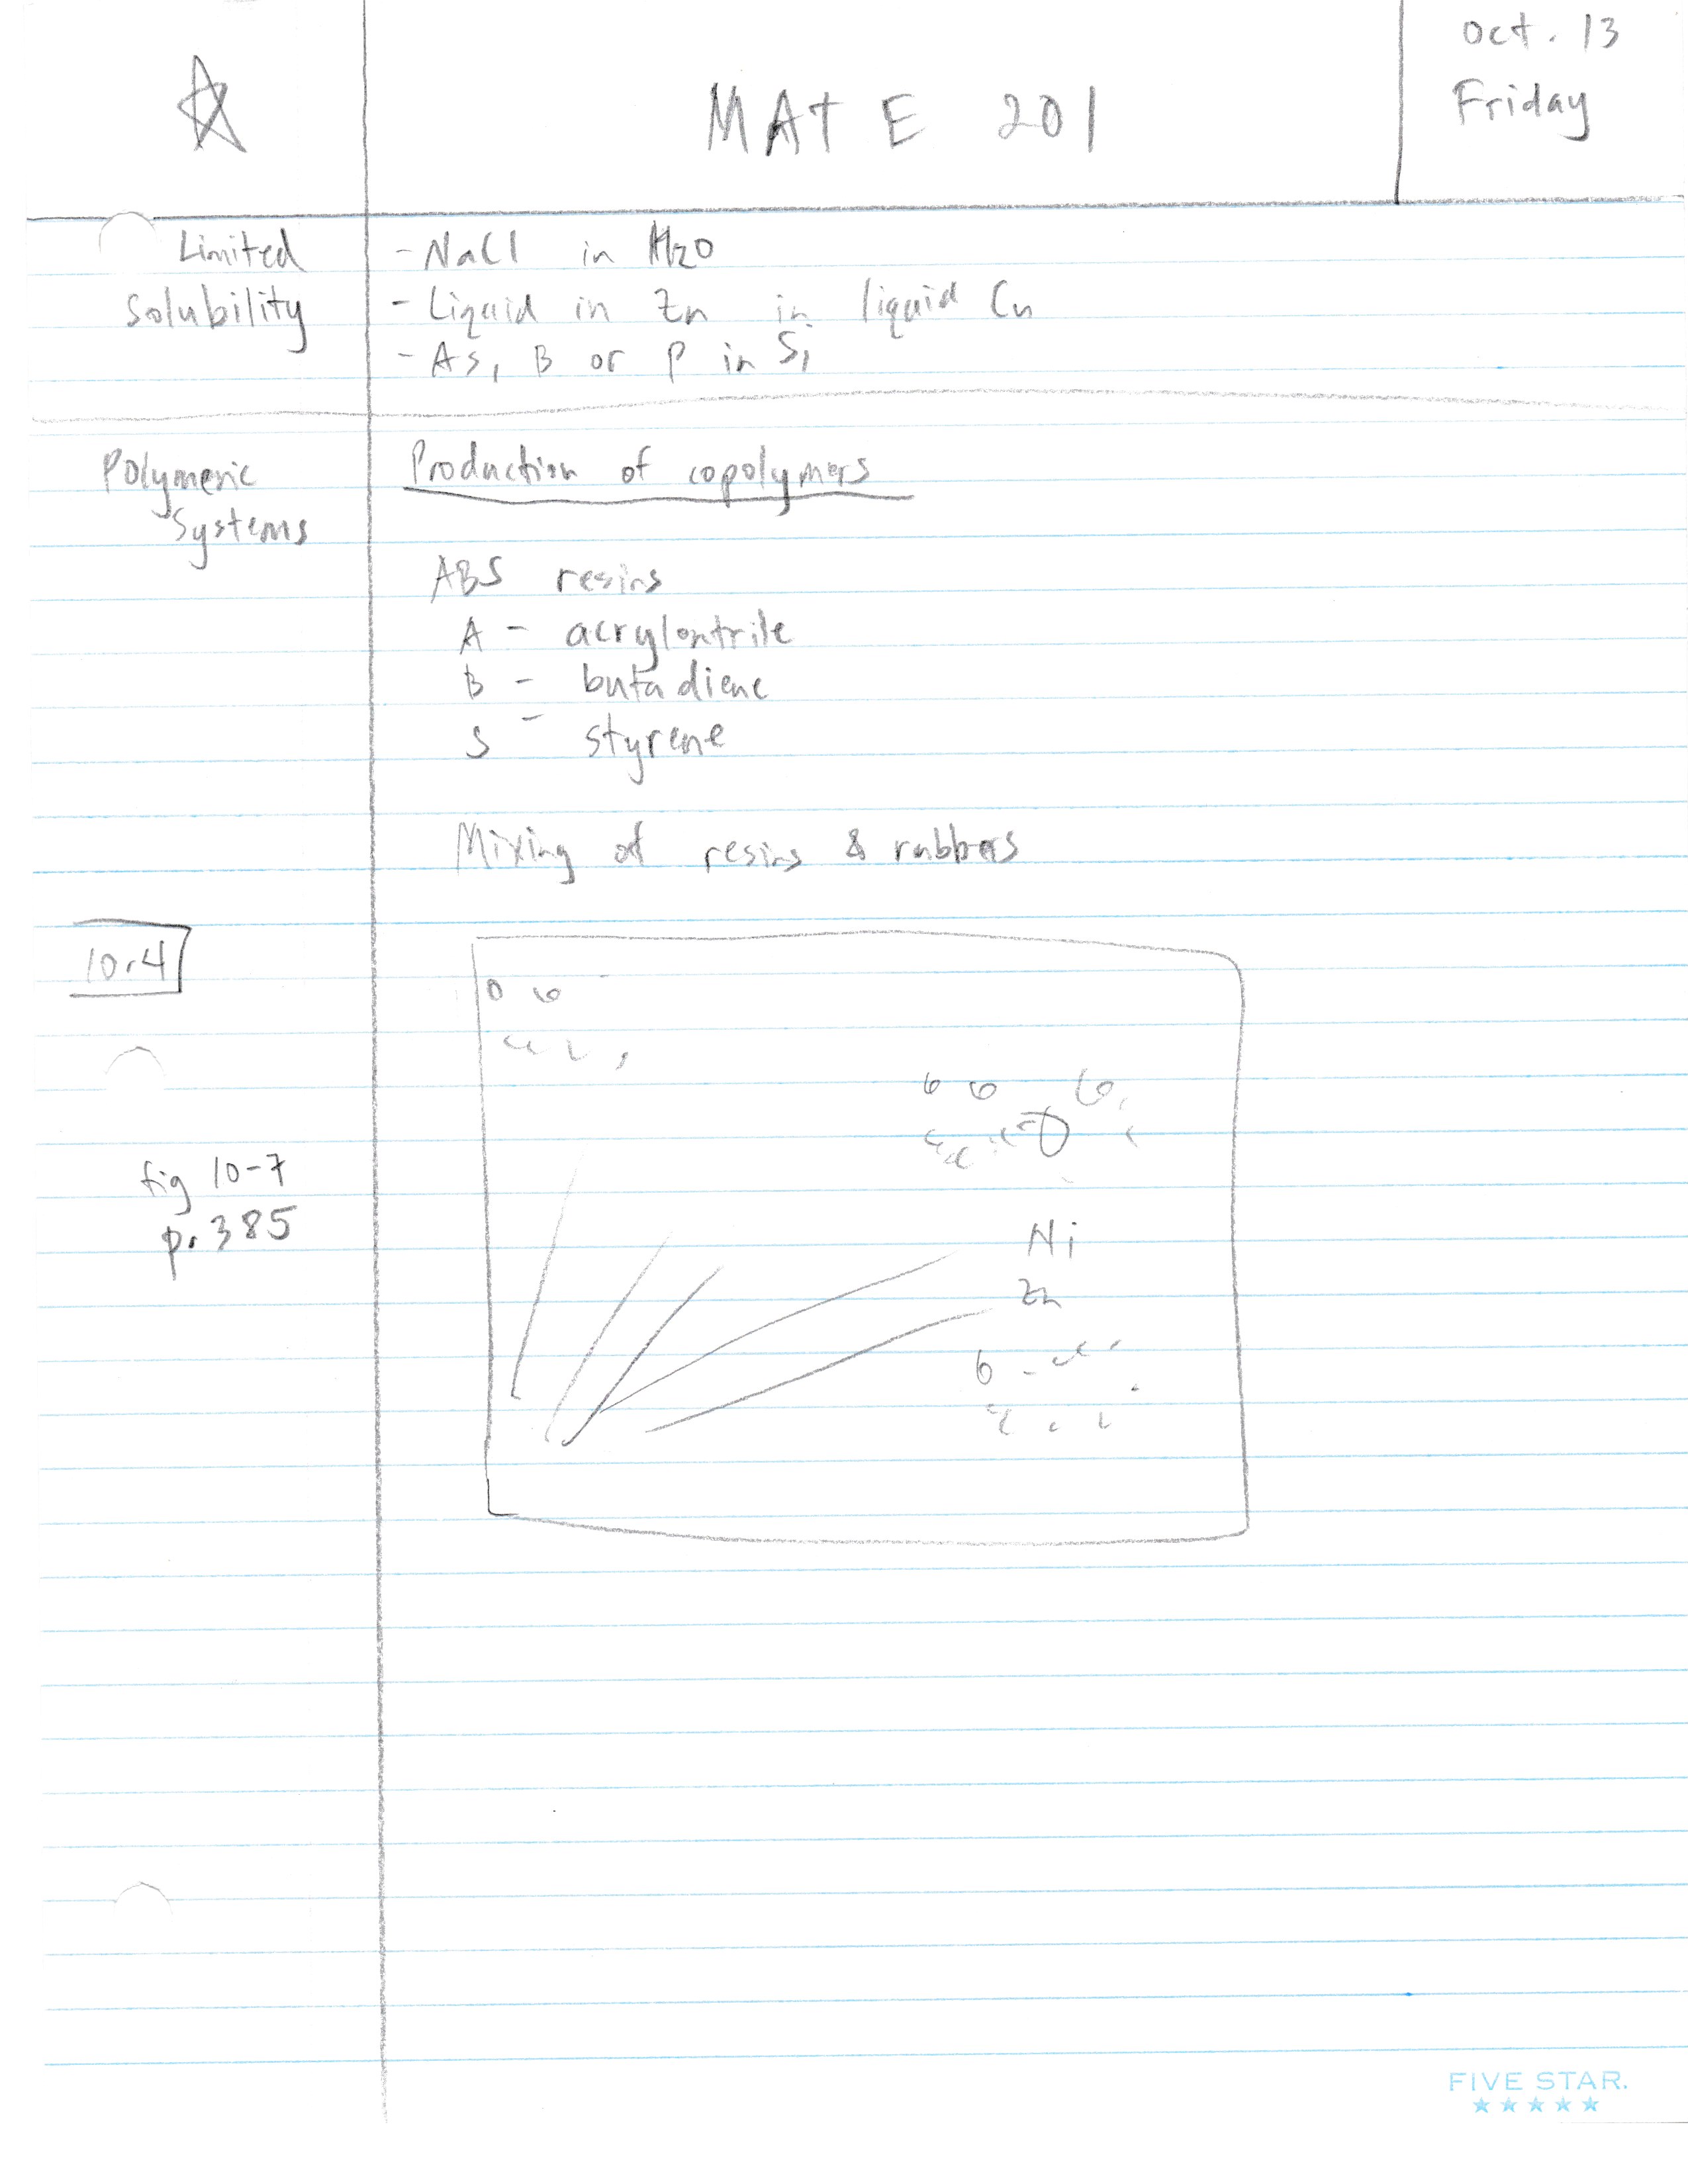 Oct. 13
Friday
MAT E 201
Limited
Solubility
- NaCl in H2O
- Liquid in Zn in liquid Cu
- As, B or P in Si
Polymeric
Systems
Production of copolymers
ABS resins
A - acrylontrile
B - butadiene
S - styrene
Mixing of resins & rubbers
10.4
fig 10-7
p. 385
Ni
Zn
FIVE STAR.